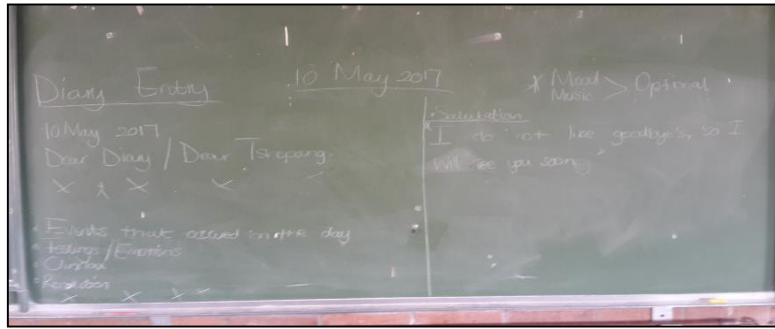 Diary Entry
10 May 2017
* Mood
Music > Optional
10 May 2017
Dear Diary / Dear Tshepang
x x x x
• Events that occured on the day
• Feelings / Emotions
• Climax
• Resolution
x x x
• Salutation
I do not like goodbye's, so I
will see you soon